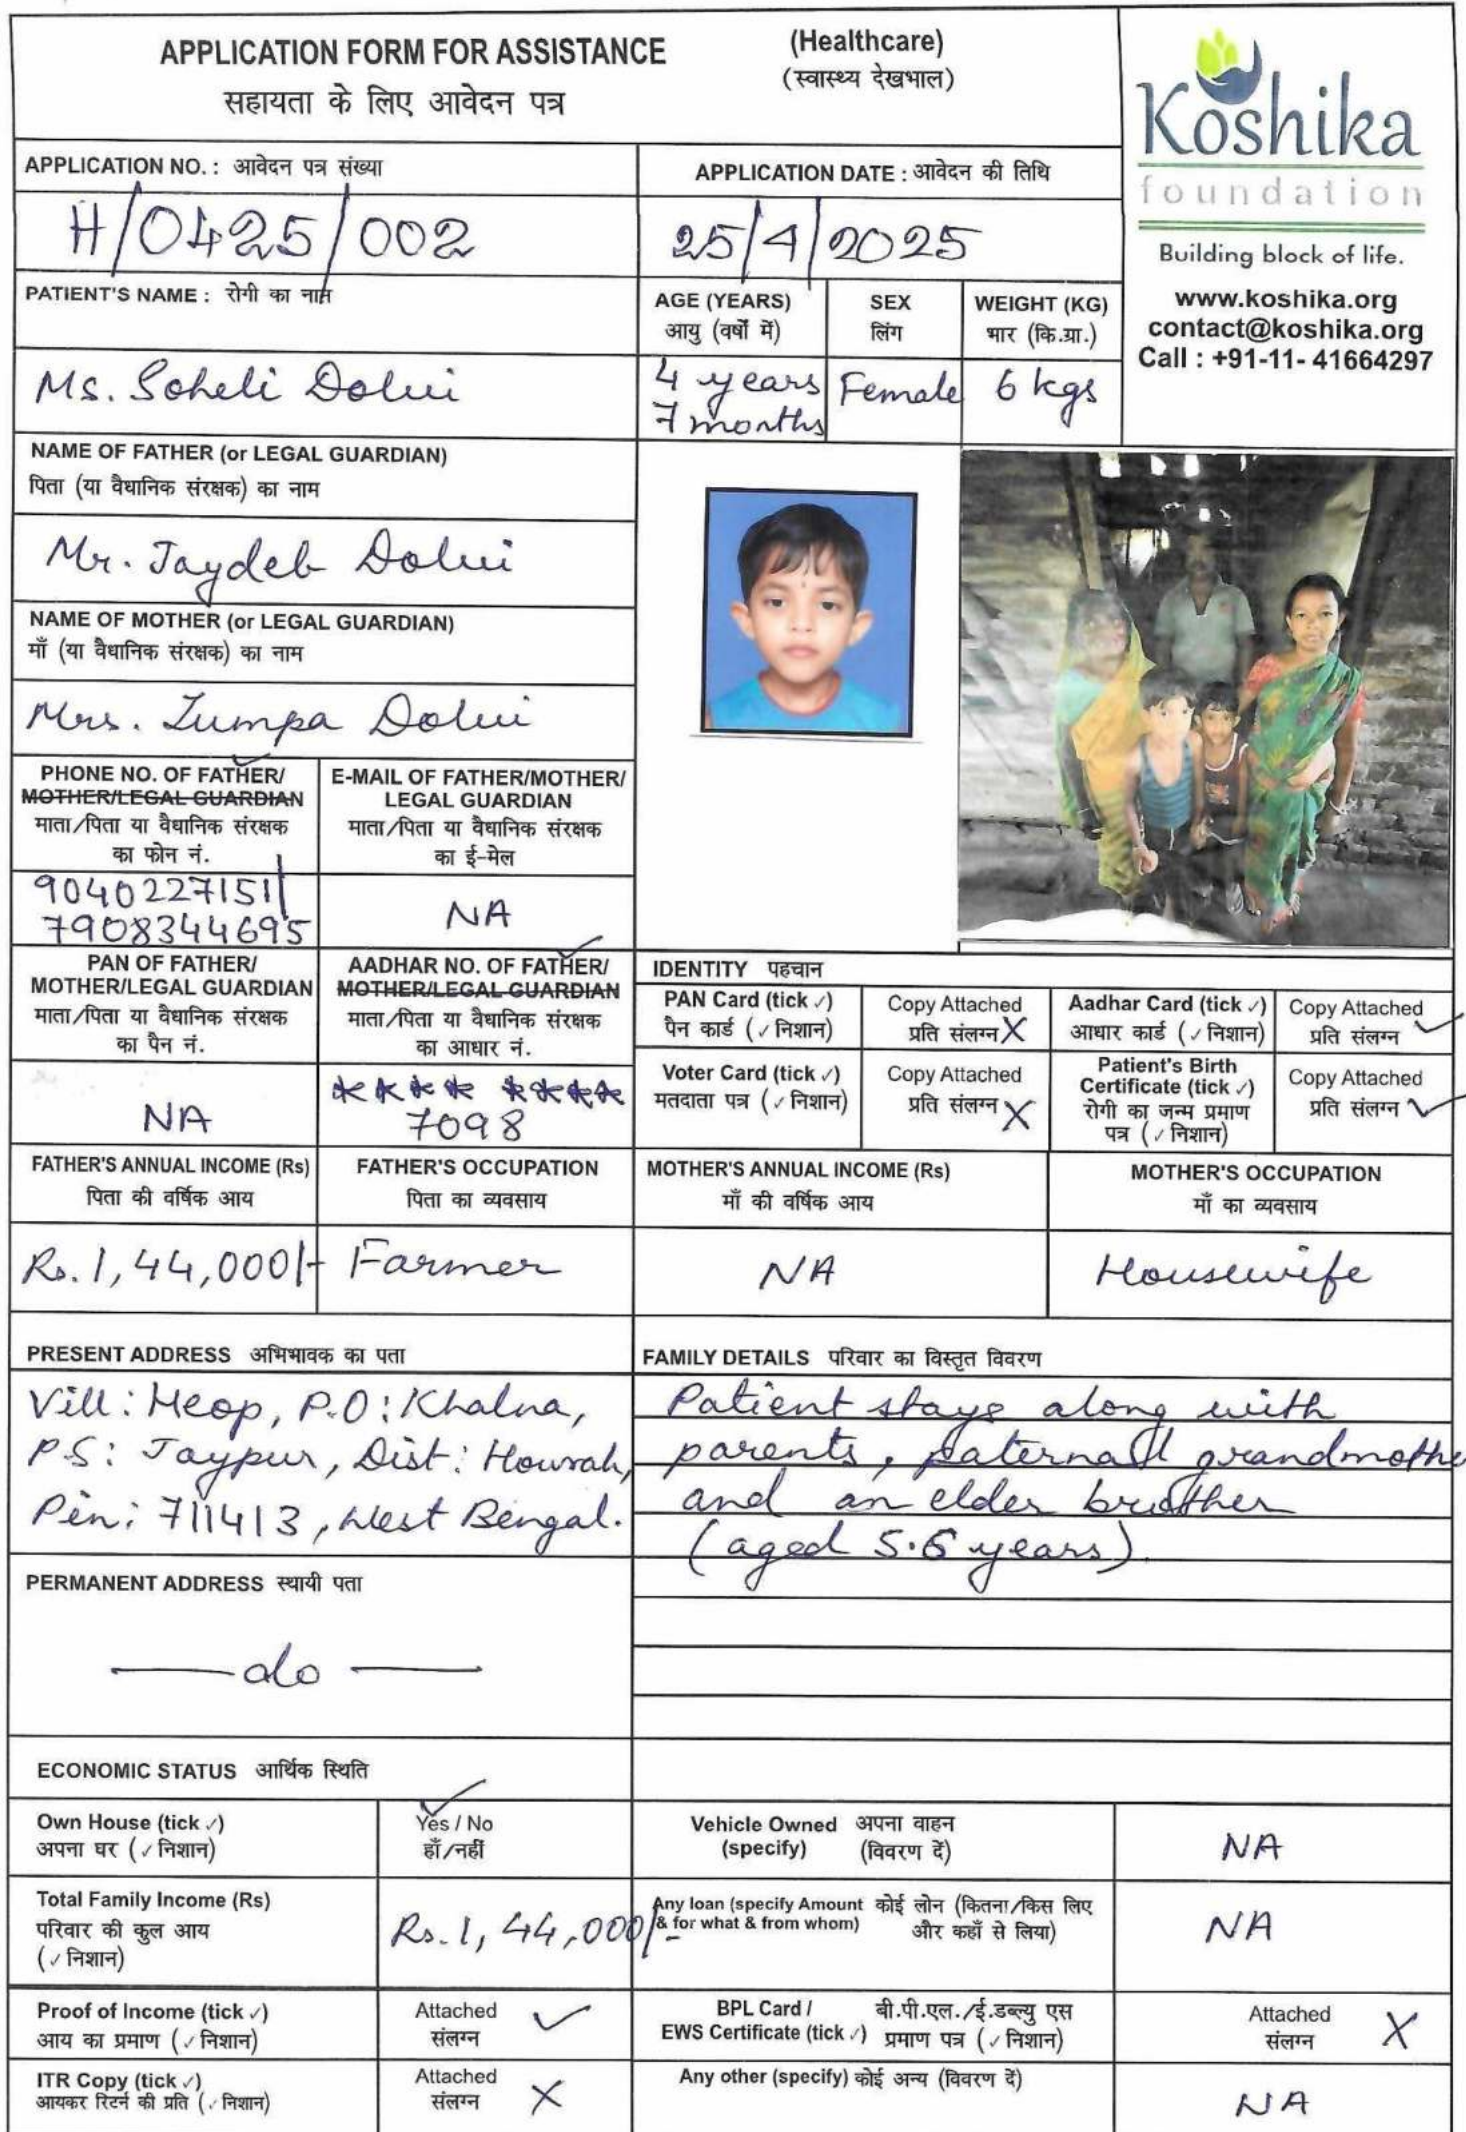 APPLICATION FORM FOR ASSISTANCE
(Healthcare)
सहायता के लिए आवेदन पत्र
(स्वास्थ्य देखभाल)
Koshika
foundation
Building block of life.
www.koshika.org
contact@koshika.org
Call : +91-11- 41664297
APPLICATION NO. : आवेदन पत्र संख्या
APPLICATION DATE : आवेदन की तिथि
H/0425/002
25/4/2025
PATIENT'S NAME : रोगी का नाम
AGE (YEARS)
आयु (वर्षों में)
SEX
लिंग
WEIGHT (KG)
भार (कि.ग्रा.)
Ms. Soheli Dolui
4 years
7 months
Female
6 kgs
NAME OF FATHER (or LEGAL GUARDIAN)
पिता (या वैधानिक संरक्षक) का नाम
Mr. Jaydeb Dolui
NAME OF MOTHER (or LEGAL GUARDIAN)
माँ (या वैधानिक संरक्षक) का नाम
Mrs. Lumpa Dolui
PHONE NO. OF FATHER/
MOTHER/LEGAL GUARDIAN
माता/पिता या वैधानिक संरक्षक
का फोन नं.
E-MAIL OF FATHER/MOTHER/
LEGAL GUARDIAN
माता/पिता या वैधानिक संरक्षक
का ई-मेल
9040227151/
7908344695
NA
PAN OF FATHER/
MOTHER/LEGAL GUARDIAN
माता/पिता या वैधानिक संरक्षक
का पैन नं.
AADHAR NO. OF FATHER/
MOTHER/LEGAL GUARDIAN
माता/पिता या वैधानिक संरक्षक
का आधार नं.
NA
**** ****
7098
IDENTITY पहचान
PAN Card (tick ✓)
पैन कार्ड (✓ निशान)
Copy Attached
प्रति संलग्न X
Aadhar Card (tick ✓)
आधार कार्ड (✓ निशान)
Copy Attached
प्रति संलग्न ✓
Voter Card (tick ✓)
मतदाता पत्र (✓ निशान)
Copy Attached
प्रति संलग्न X
Patient's Birth
Certificate (tick ✓)
रोगी का जन्म प्रमाण
पत्र (✓ निशान)
Copy Attached
प्रति संलग्न ✓
FATHER'S ANNUAL INCOME (Rs)
पिता की वर्षिक आय
FATHER'S OCCUPATION
पिता का व्यवसाय
MOTHER'S ANNUAL INCOME (Rs)
माँ की वर्षिक आय
MOTHER'S OCCUPATION
माँ का व्यवसाय
Rs. 1,44,000/-
Farmer
NA
Housewife
PRESENT ADDRESS अभिभावक का पता
Vill: Heop, P.O: Khalna,
P.S: Jaypur, Dist: Howrah,
Pin: 711413, West Bengal.
FAMILY DETAILS परिवार का विस्तृत विवरण
Patient stays along with
parents, paternal grandmothe
and an elder brother
(aged 5.6 years).
PERMANENT ADDRESS स्थायी पता
— do —
ECONOMIC STATUS आर्थिक स्थिति
Own House (tick ✓)
अपना घर (✓ निशान)
Yes / No
हाँ/नहीं
Vehicle Owned अपना वाहन
(specify) (विवरण दें)
NA
Total Family Income (Rs)
परिवार की कुल आय
(✓ निशान)
Rs. 1,44,000/-
Any loan (specify Amount कोई लोन (कितना/किस लिए
& for what & from whom) और कहाँ से लिया)
NA
Proof of Income (tick ✓)
आय का प्रमाण (✓ निशान)
Attached ✓
संलग्न
BPL Card / बी.पी.एल./ई.डब्ल्यु एस
EWS Certificate (tick ✓) प्रमाण पत्र (✓ निशान)
Attached X
संलग्न
ITR Copy (tick ✓)
आयकर रिटर्न की प्रति (✓ निशान)
Attached X
संलग्न
Any other (specify) कोई अन्य (विवरण दें)
NA